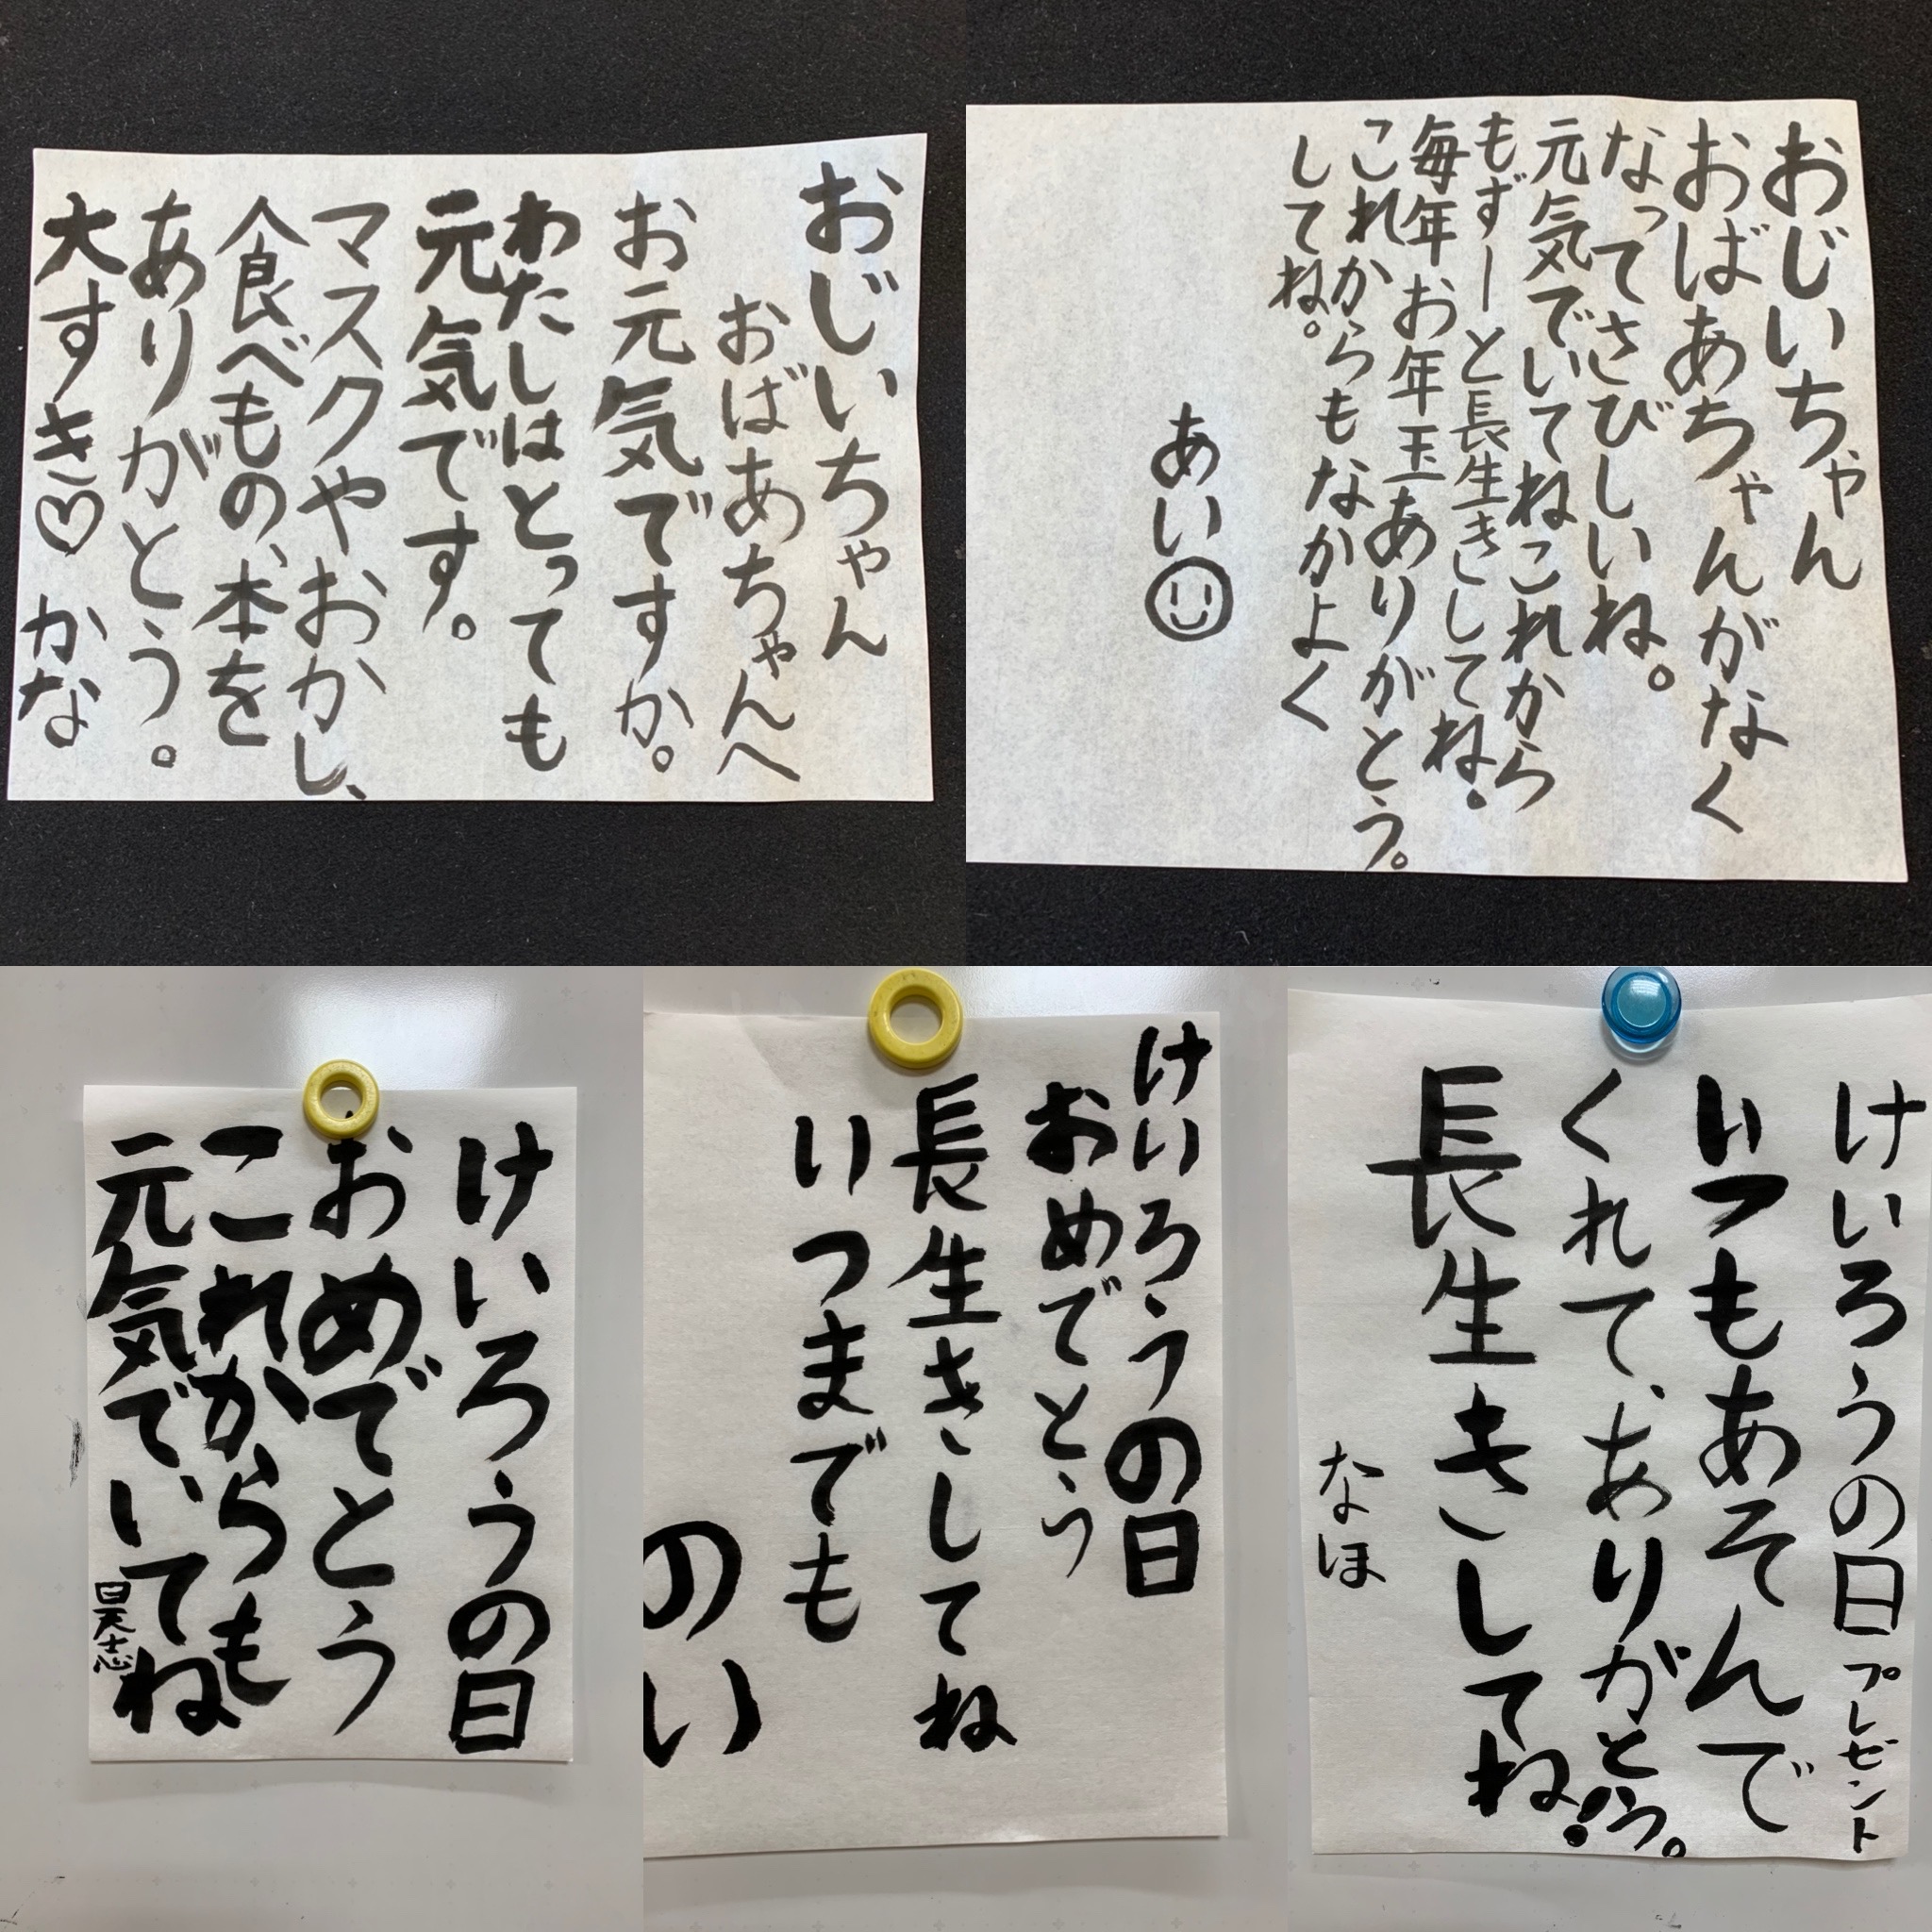 おじいちゃん
おばあちゃんへ
お元気ですか。
わたしはとっても
元気です。
マスクやおかし、
食べもの、本を
ありがとう。
大すき♡ かな
おじいちゃん
おばあちゃんがなく
なってさびしいね。
元気でいてねこれから
もずーと長生きしてね。
毎年お年玉ありがとう。
これからもなかよく
してね。
あい
けいろうの日
おめでとう
これからも
元気でいてね
昊志
けいろうの日
おめでとう
長生きしてね
いつまでも
のい
けいろうの日プレゼント
いつもあそんで
くれて、ありがとう。
長生きしてね!
なほ